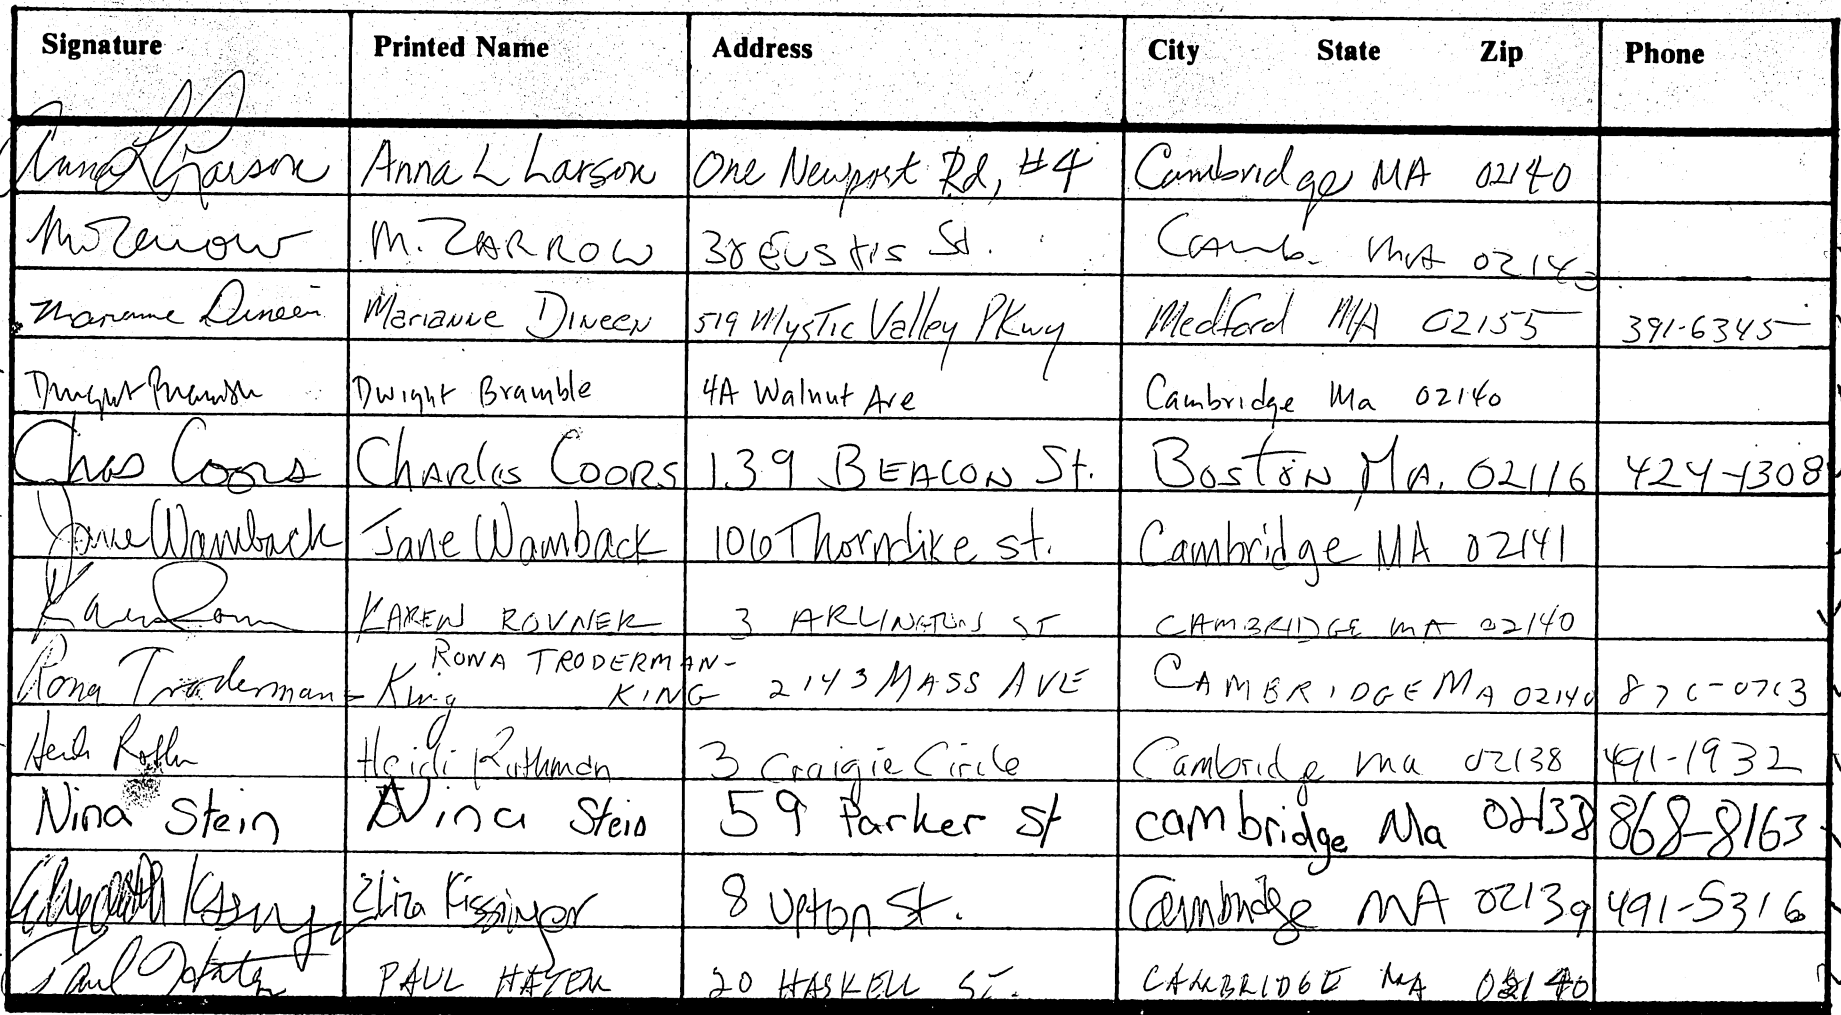 Signature Printed Name Address City State Zip Phone
Anna L Larson Anna L Larson One Newport Rd, #4 Cambridge MA 02140
M Zarrow M. ZARROW 38 Eustis St. Camb. MA 02140
Marianne Dineen Marianne Dineen 519 Mystic Valley PKwy Medford MA 02155 391-6345
Dwight Bramble Dwight Bramble 4A Walnut Ave Cambridge Ma 02140
Chas Coors Charles Coors 139 BEACON St. Boston MA. 02116 424-1308
Jane Wamback Jane Wamback 106 Thorndike st. Cambridge MA 02141
Karen KAREN ROVNER 3 ARLINGTON ST CAMBRIDGE MA 02140
RONA TRODERMAN-
Rona Troderman-King KING 2143 MASS AVE CAMBRIDGE MA 02140 876-0763
Heidi Heidi Ruthman 3 Craigie Circle Cambridge Ma 02138 491-1932
Nina Stein Nina Stein 59 Parker St Cambridge Ma 02138 868-8163
Eliza Kissinger 8 Upton St. Cambridge MA 02139 491-5316
Paul PAUL HAYEM 20 HASKELL ST. CAMBRIDGE MA 02140